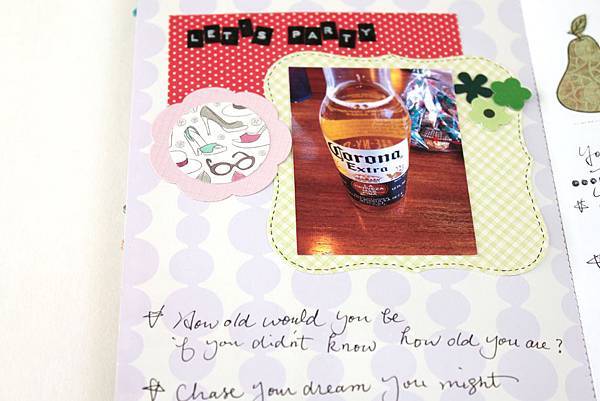 LET'S PARTY
Corona
Extra
How old would you be
if you didn't know how old you are?
Chase your dream you might
yo